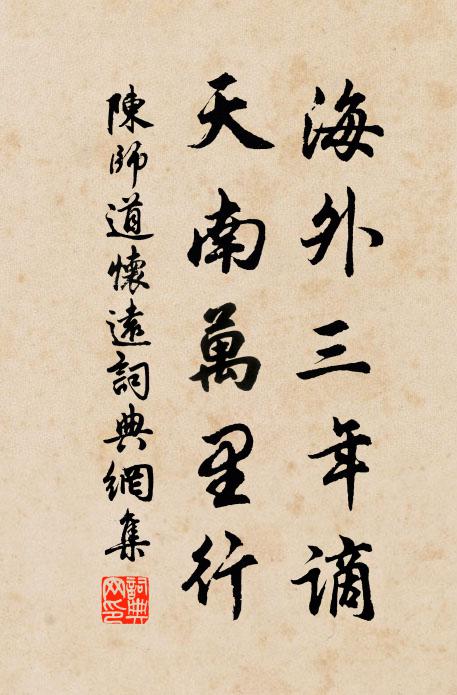 海外三年謫
天南萬里行
陳師道懷遠詞典網集
詞典網印